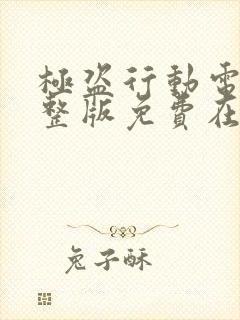 極盜行動電
整版免費在
兔子酥